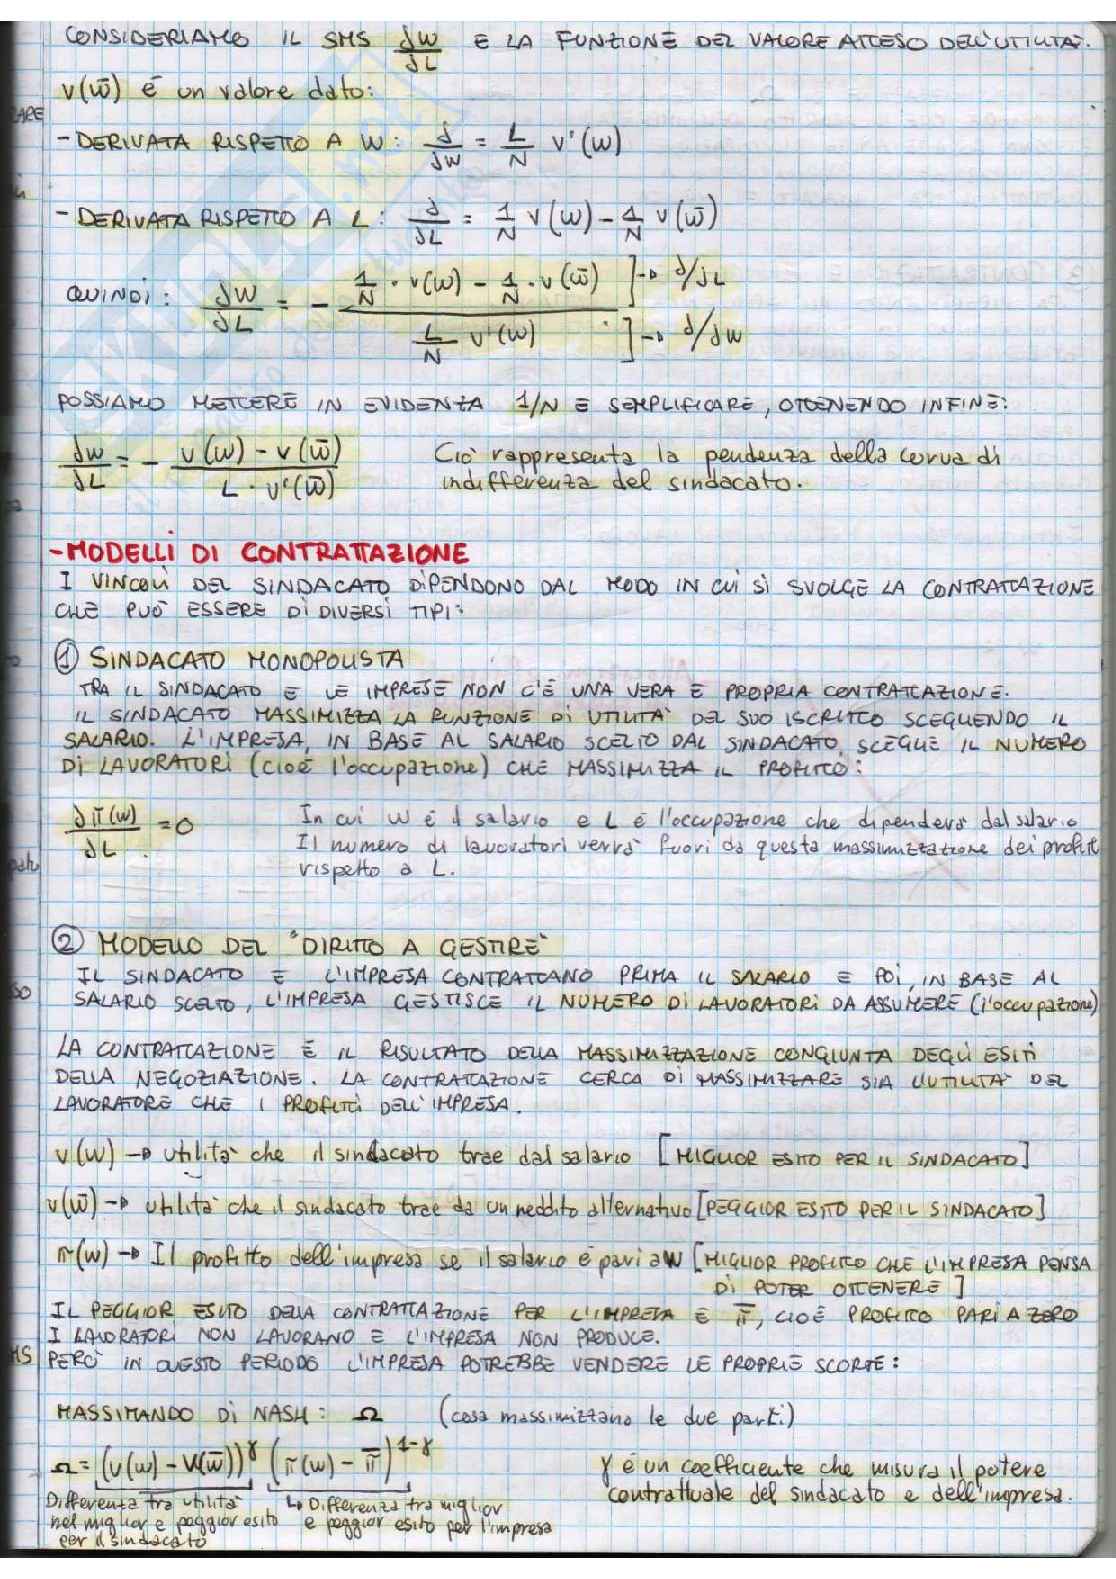 CONSIDERIAMO IL SMS dW/dL E LA FUNZIONE DEL VALORE ATTESO DELL'UTILITÀ.
v(w̄) è un valore dato:
- DERIVATA RISPETTO A W: d/dW = L/N v'(w)
- DERIVATA RISPETTO A L: d/dL = 1/N v(w) - 1/N v(w̄)
QUINDI: dW/dL = - (1/N · v(w) - 1/N · v(w̄)) / (L/N v'(w)) ] → d/dL ] → d/dW
POSSIAMO METTERE IN EVIDENZA 1/N E SEMPLIFICARE, OTTENENDO INFINE:
dW/dL = - (v(w) - v(w̄)) / (L · v'(w̄)) Ciò rappresenta la pendenza della curva di
indifferenza del sindacato.
- MODELLI DI CONTRATTAZIONE
I VINCOLI DEL SINDACATO DIPENDONO DAL MODO IN CUI SI SVOLGE LA CONTRATTAZIONE
CHE PUÒ ESSERE DI DIVERSI TIPI:
① SINDACATO MONOPOLISTA
TRA IL SINDACATO E LE IMPRESE NON C'È UNA VERA E PROPRIA CONTRATTAZIONE.
IL SINDACATO MASSIMIZZA LA FUNZIONE DI UTILITÀ DEL SUO ISCRITTO SCEGLIENDO IL
SALARIO. L'IMPRESA, IN BASE AL SALARIO SCELTO DAL SINDACATO, SCEGLIE IL NUMERO
DI LAVORATORI (cioè l'occupazione) CHE MASSIMIZZA IL PROFITTO:
dπ(w)/dL = 0 In cui w è il salario e L è l'occupazione che dipenderà dal salario
Il numero di lavoratori verrà fuori da questa massimizzazione dei profitti
rispetto a L.
② MODELLO DEL "DIRITTO A GESTIRE"
IL SINDACATO E L'IMPRESA CONTRATTANO PRIMA IL SALARIO E POI, IN BASE AL
SALARIO SCELTO, L'IMPRESA GESTISCE IL NUMERO DI LAVORATORI DA ASSUMERE (l'occupazione)
LA CONTRATTAZIONE È IL RISULTATO DELLA MASSIMIZZAZIONE CONGIUNTA DEGLI ESITI
DELLA NEGOZIAZIONE. LA CONTRATTAZIONE CERCA DI MASSIMIZZARE SIA L'UTILITÀ DEL
LAVORATORE CHE I PROFITTI DELL'IMPRESA.
v(w) → utilità che il sindacato trae dal salario [MIGLIOR ESITO PER IL SINDACATO]
v(w̄) → utilità che il sindacato trae da un reddito alternativo [PEGGIOR ESITO PER IL SINDACATO]
π(w) → Il profitto dell'impresa se il salario è pari a W [MIGLIOR PROFITTO CHE L'IMPRESA PENSA
DI POTER OTTENERE]
IL PEGGIOR ESITO DELLA CONTRATTAZIONE PER L'IMPRESA È π̄, CIOÈ PROFITTO PARI A ZERO
I LAVORATORI NON LAVORANO E L'IMPRESA NON PRODUCE.
PERÒ IN QUESTO PERIODO L'IMPRESA POTREBBE VENDERE LE PROPRIE SCORTE:
MASSIMANDO DI NASH: Ω (cosa massimizzano le due parti)
Ω = (v(w) - v(w̄))^γ (π(w) - π̄)^1-γ γ è un coefficiente che misura il potere
contrattuale del sindacato e dell'impresa.
Differenza tra utilità
nel miglior e peggior esito
per il sindacato
↳ Differenza tra miglior
e peggior esito per l'impresa